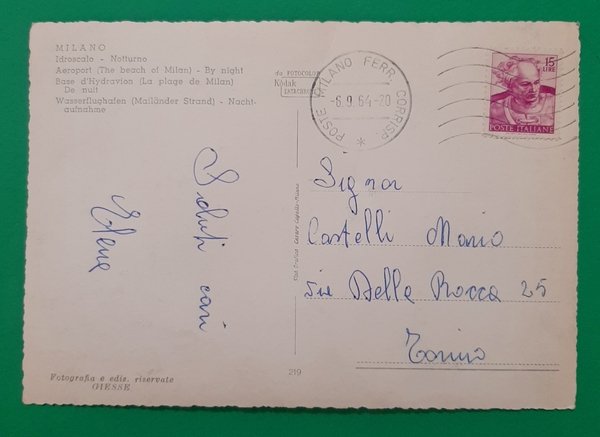 MILANO
Idroscalo - Notturno
Aeroport (The beach of Milan) - By night
Base d'Hydravion (La plage de Milan)
De nuit
Wasserflughafen (Mailänder Strand) - Nacht-
aufnahme
Saluti cari
Elena
Fotografia e ediz. riservate
GIESSE
219
Kodak
POSTE MILANO FERR. CORRISP.
-6.9.64-20
15
LIRE
POSTE ITALIANE
Signor
Castelli Mario
via Della Rocca 25
Torino